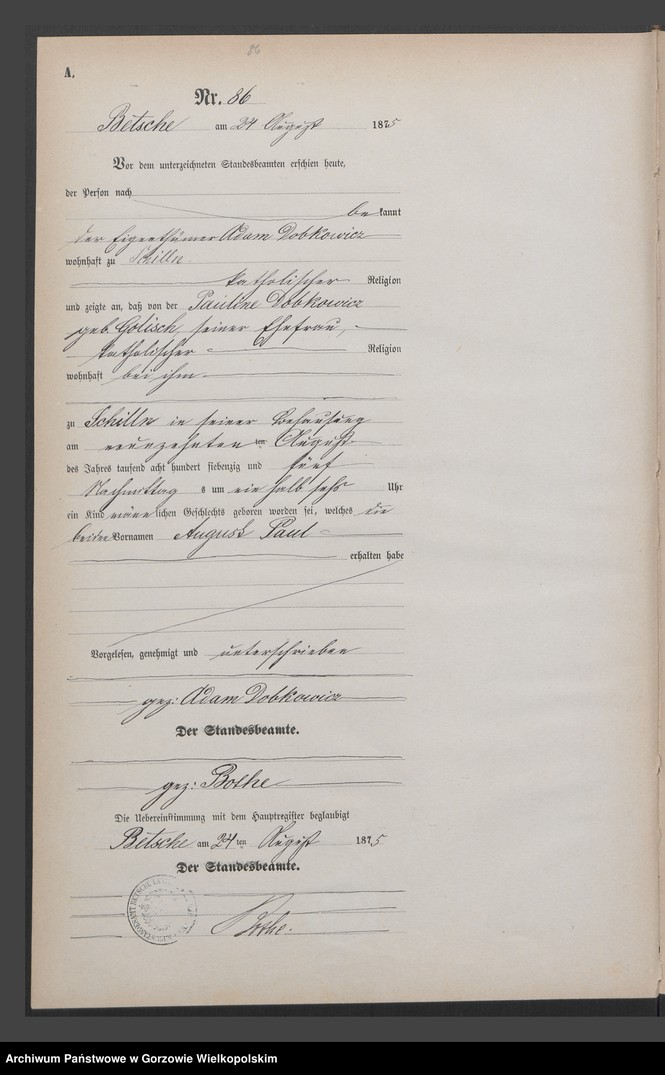 86
A.
Nr. 86
Betsche am 24 August 1875
Vor dem unterzeichneten Standesbeamten erschien heute,
der Person nach
be kannt
der Eigenthümer Adam Dobkowicz
wohnhaft zu Schilln
katholischer Religion
und zeigte an, daß von der Pauline Dobkowicz
geb. Golisch, seiner Ehefrau,
katholischer Religion
wohnhaft bei ihm
zu Schilln in seiner Behausung
am neunzehnten ten August
des Jahres tausend acht hundert siebenzig und fünf
Nachmittag s um ein halb sechs Uhr
ein Kind männlichen Geschlechts geboren worden sei, welches die
beiden Vornamen August Paul
erhalten habe
Vorgelesen, genehmigt und unterschrieben
gez: Adam Dobkowicz
Der Standesbeamte.
gez: Bothe
Die Uebereinstimmung mit dem Hauptregister beglaubigt
Betsche am 24 ten August 1875
Der Standesbeamte.
Bothe.
Archiwum Państwowe w Gorzowie Wielkopolskim